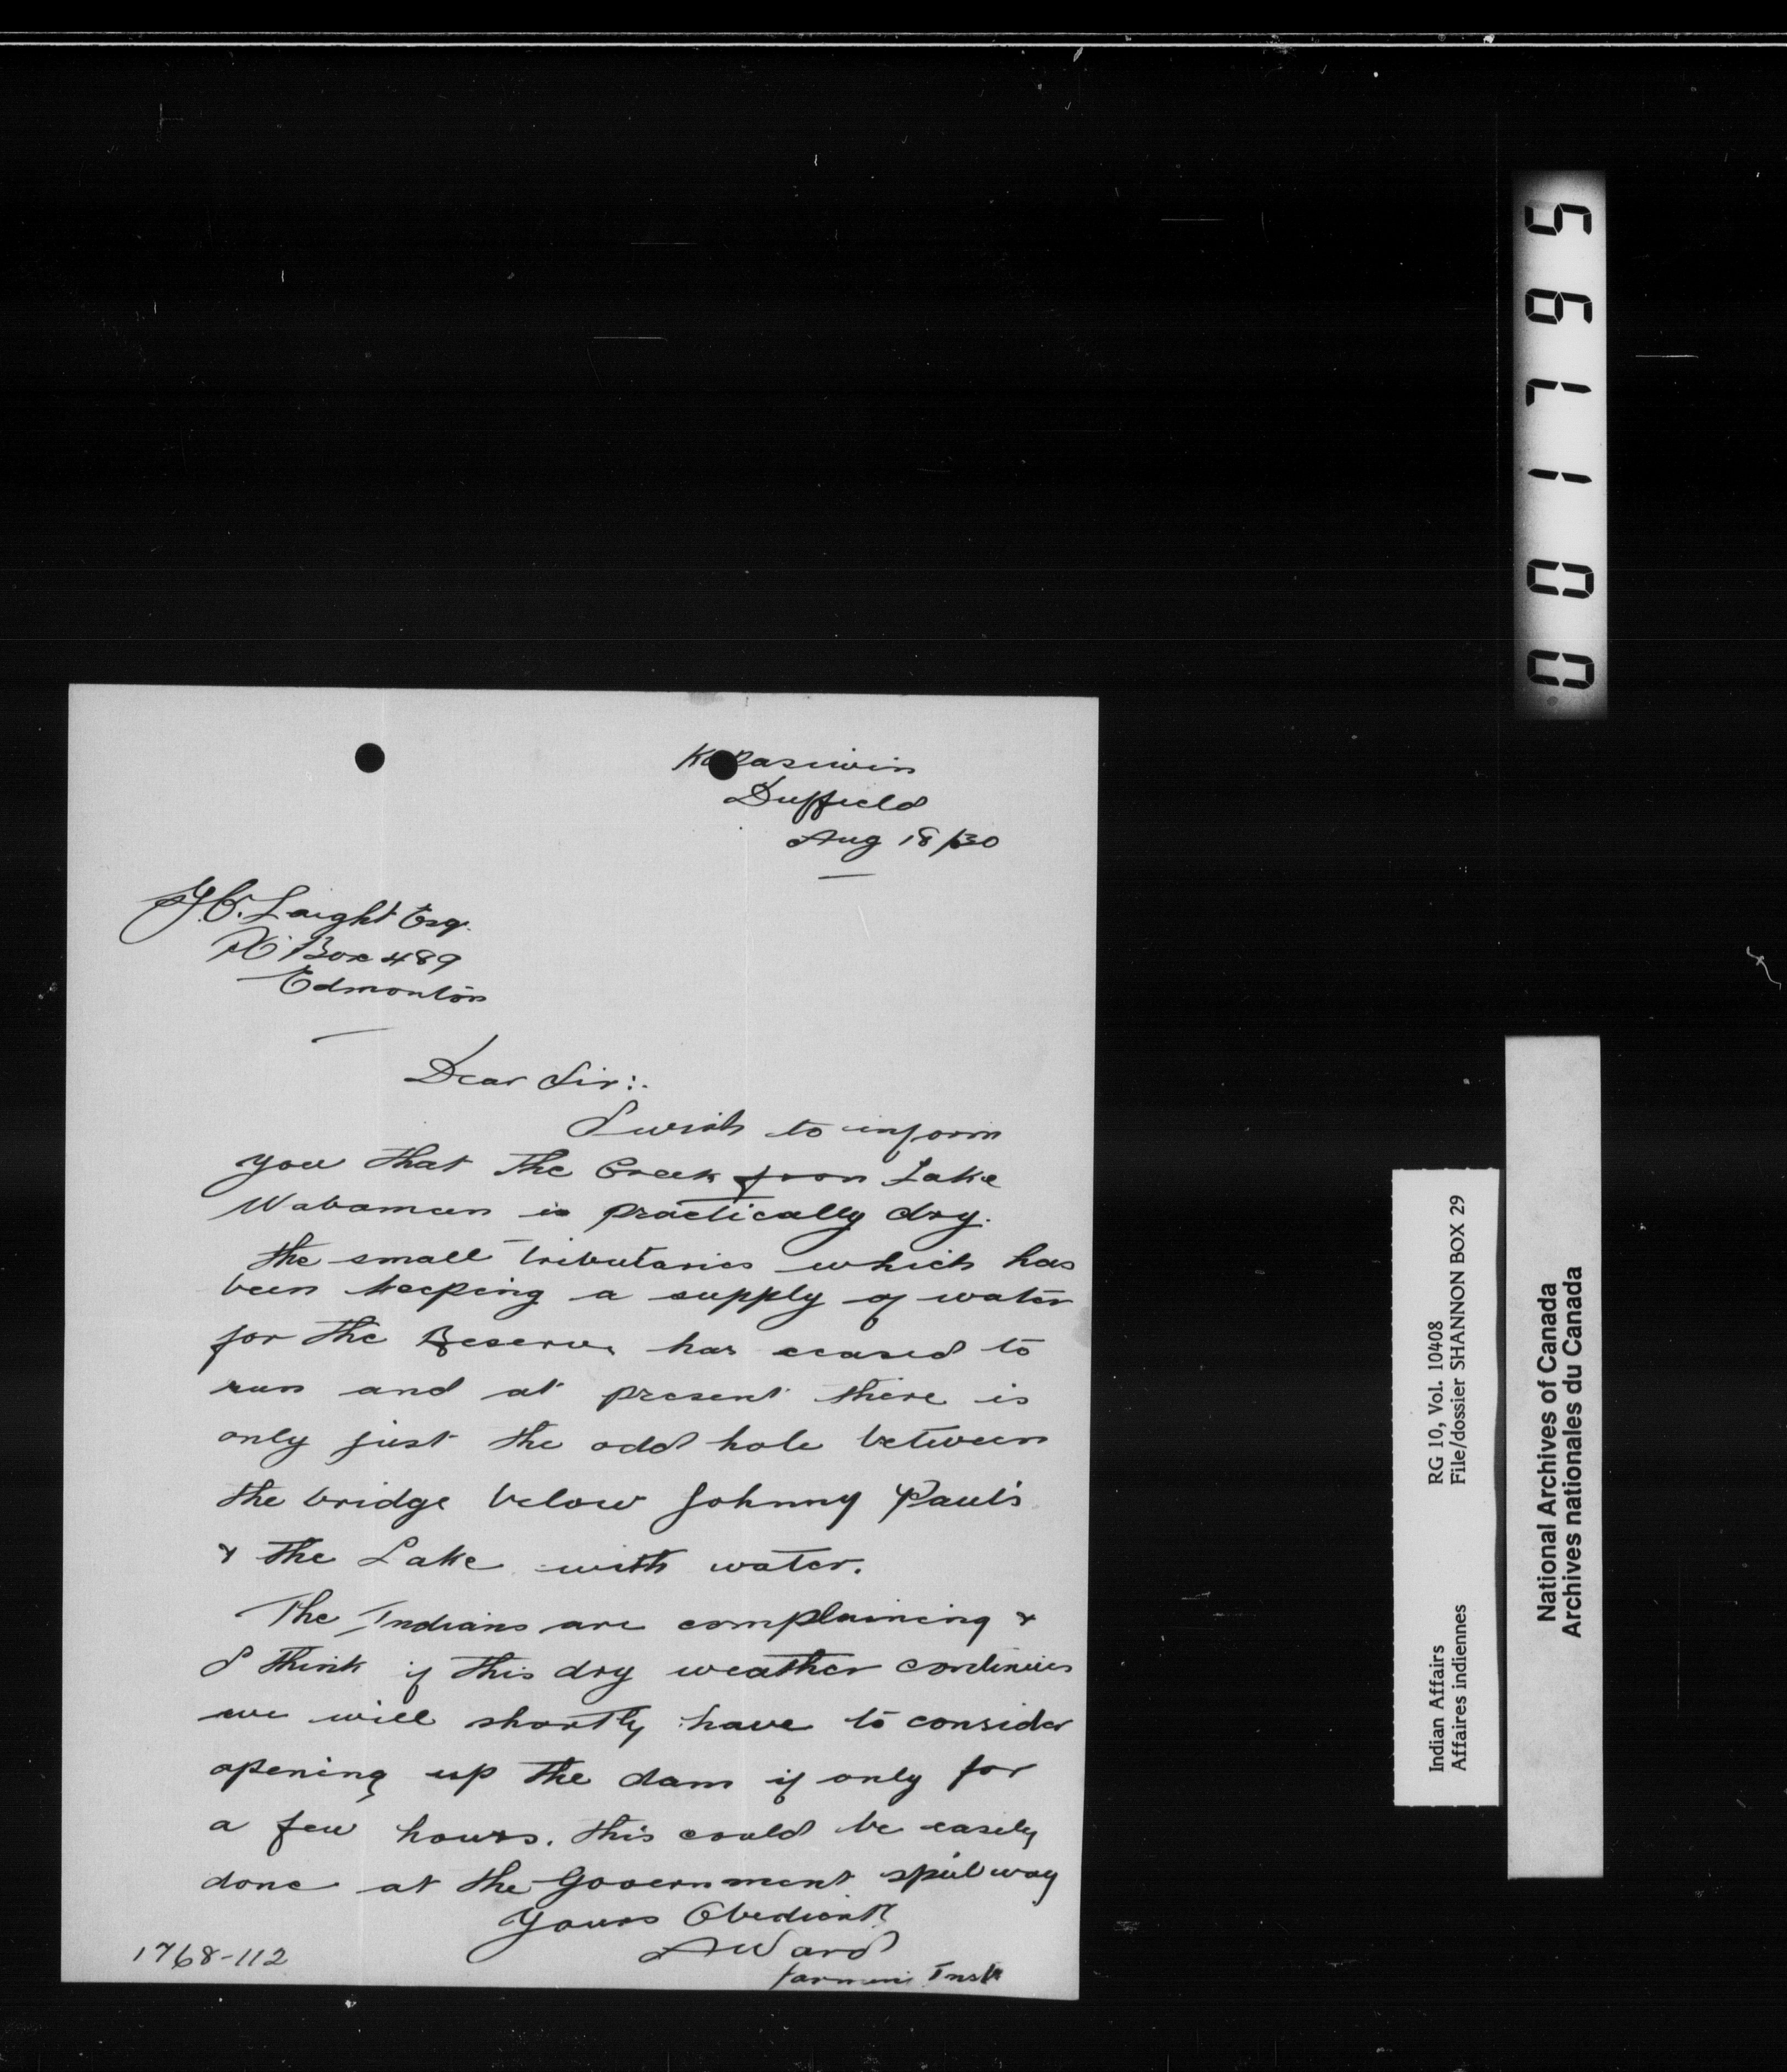 Kapasiwin
Duffield
Aug 18/30
Laight Esq.
PO Box 489
Edmonton
Dear Sir:-
I wish to inform
you that the Creek from Lake
Wabamun is practically dry.
the small tributaries which has
been keeping a supply of water
for the Reserve has ceased to
run and at present there is
only just the odd hole between
the bridge below Johnny Paul's
& the Lake with water.
The Indians are complaining &
I think if this dry weather continues
we will shortly have to consider
opening up the dam if only for
a few hours. this could be easily
done at the Government spillway
Yours Obediently
A Ward
farming Instr
1768-112
0017695
Indian Affairs RG 10, Vol. 10408
Affaires indiennes File/dossier SHANNON BOX 29
National Archives of Canada
Archives nationales du Canada